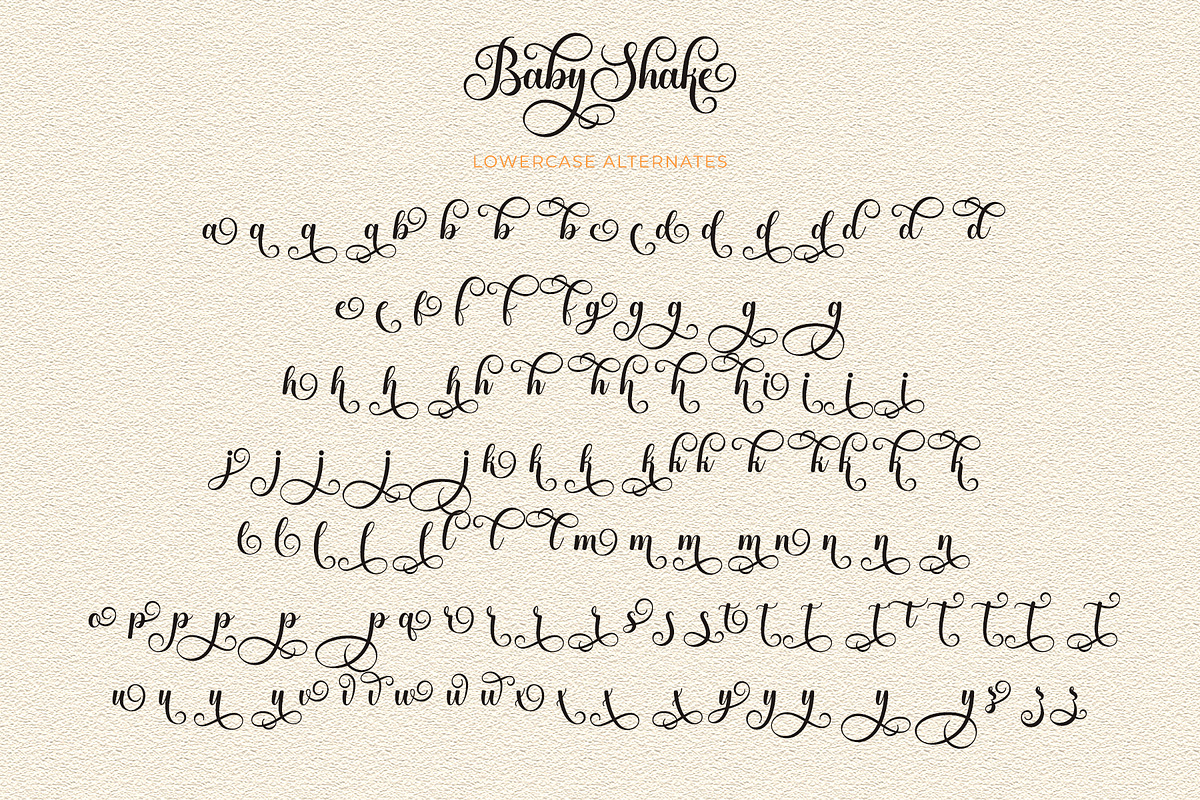 Baby Shake
LOWERCASE ALTERNATES
a a a a b b b b c c d d d d d d d
e e f f f f g g g g g
h h h h h h h h h h i i i i
j j j j j k k k k k k k k k k k
l l l l l l l l m m m m n n n n
o p p p p p q r r r r s s s t t t t t t t t t
u u u u v v v w w w x x x x y y y y y z z z